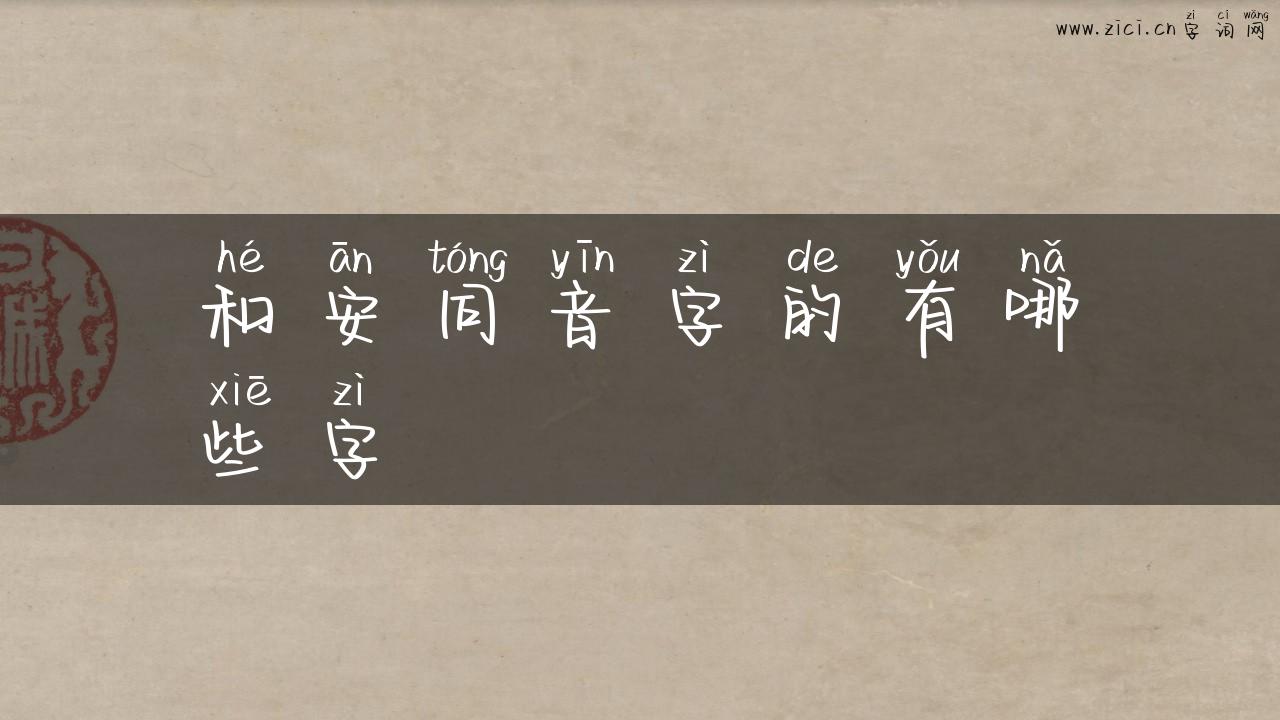 zì cí wǎng
www.zici.cn 字词网
hé ān tóng yīn zì de yǒu nǎ
和安同音字的有哪
xiē zì
些字